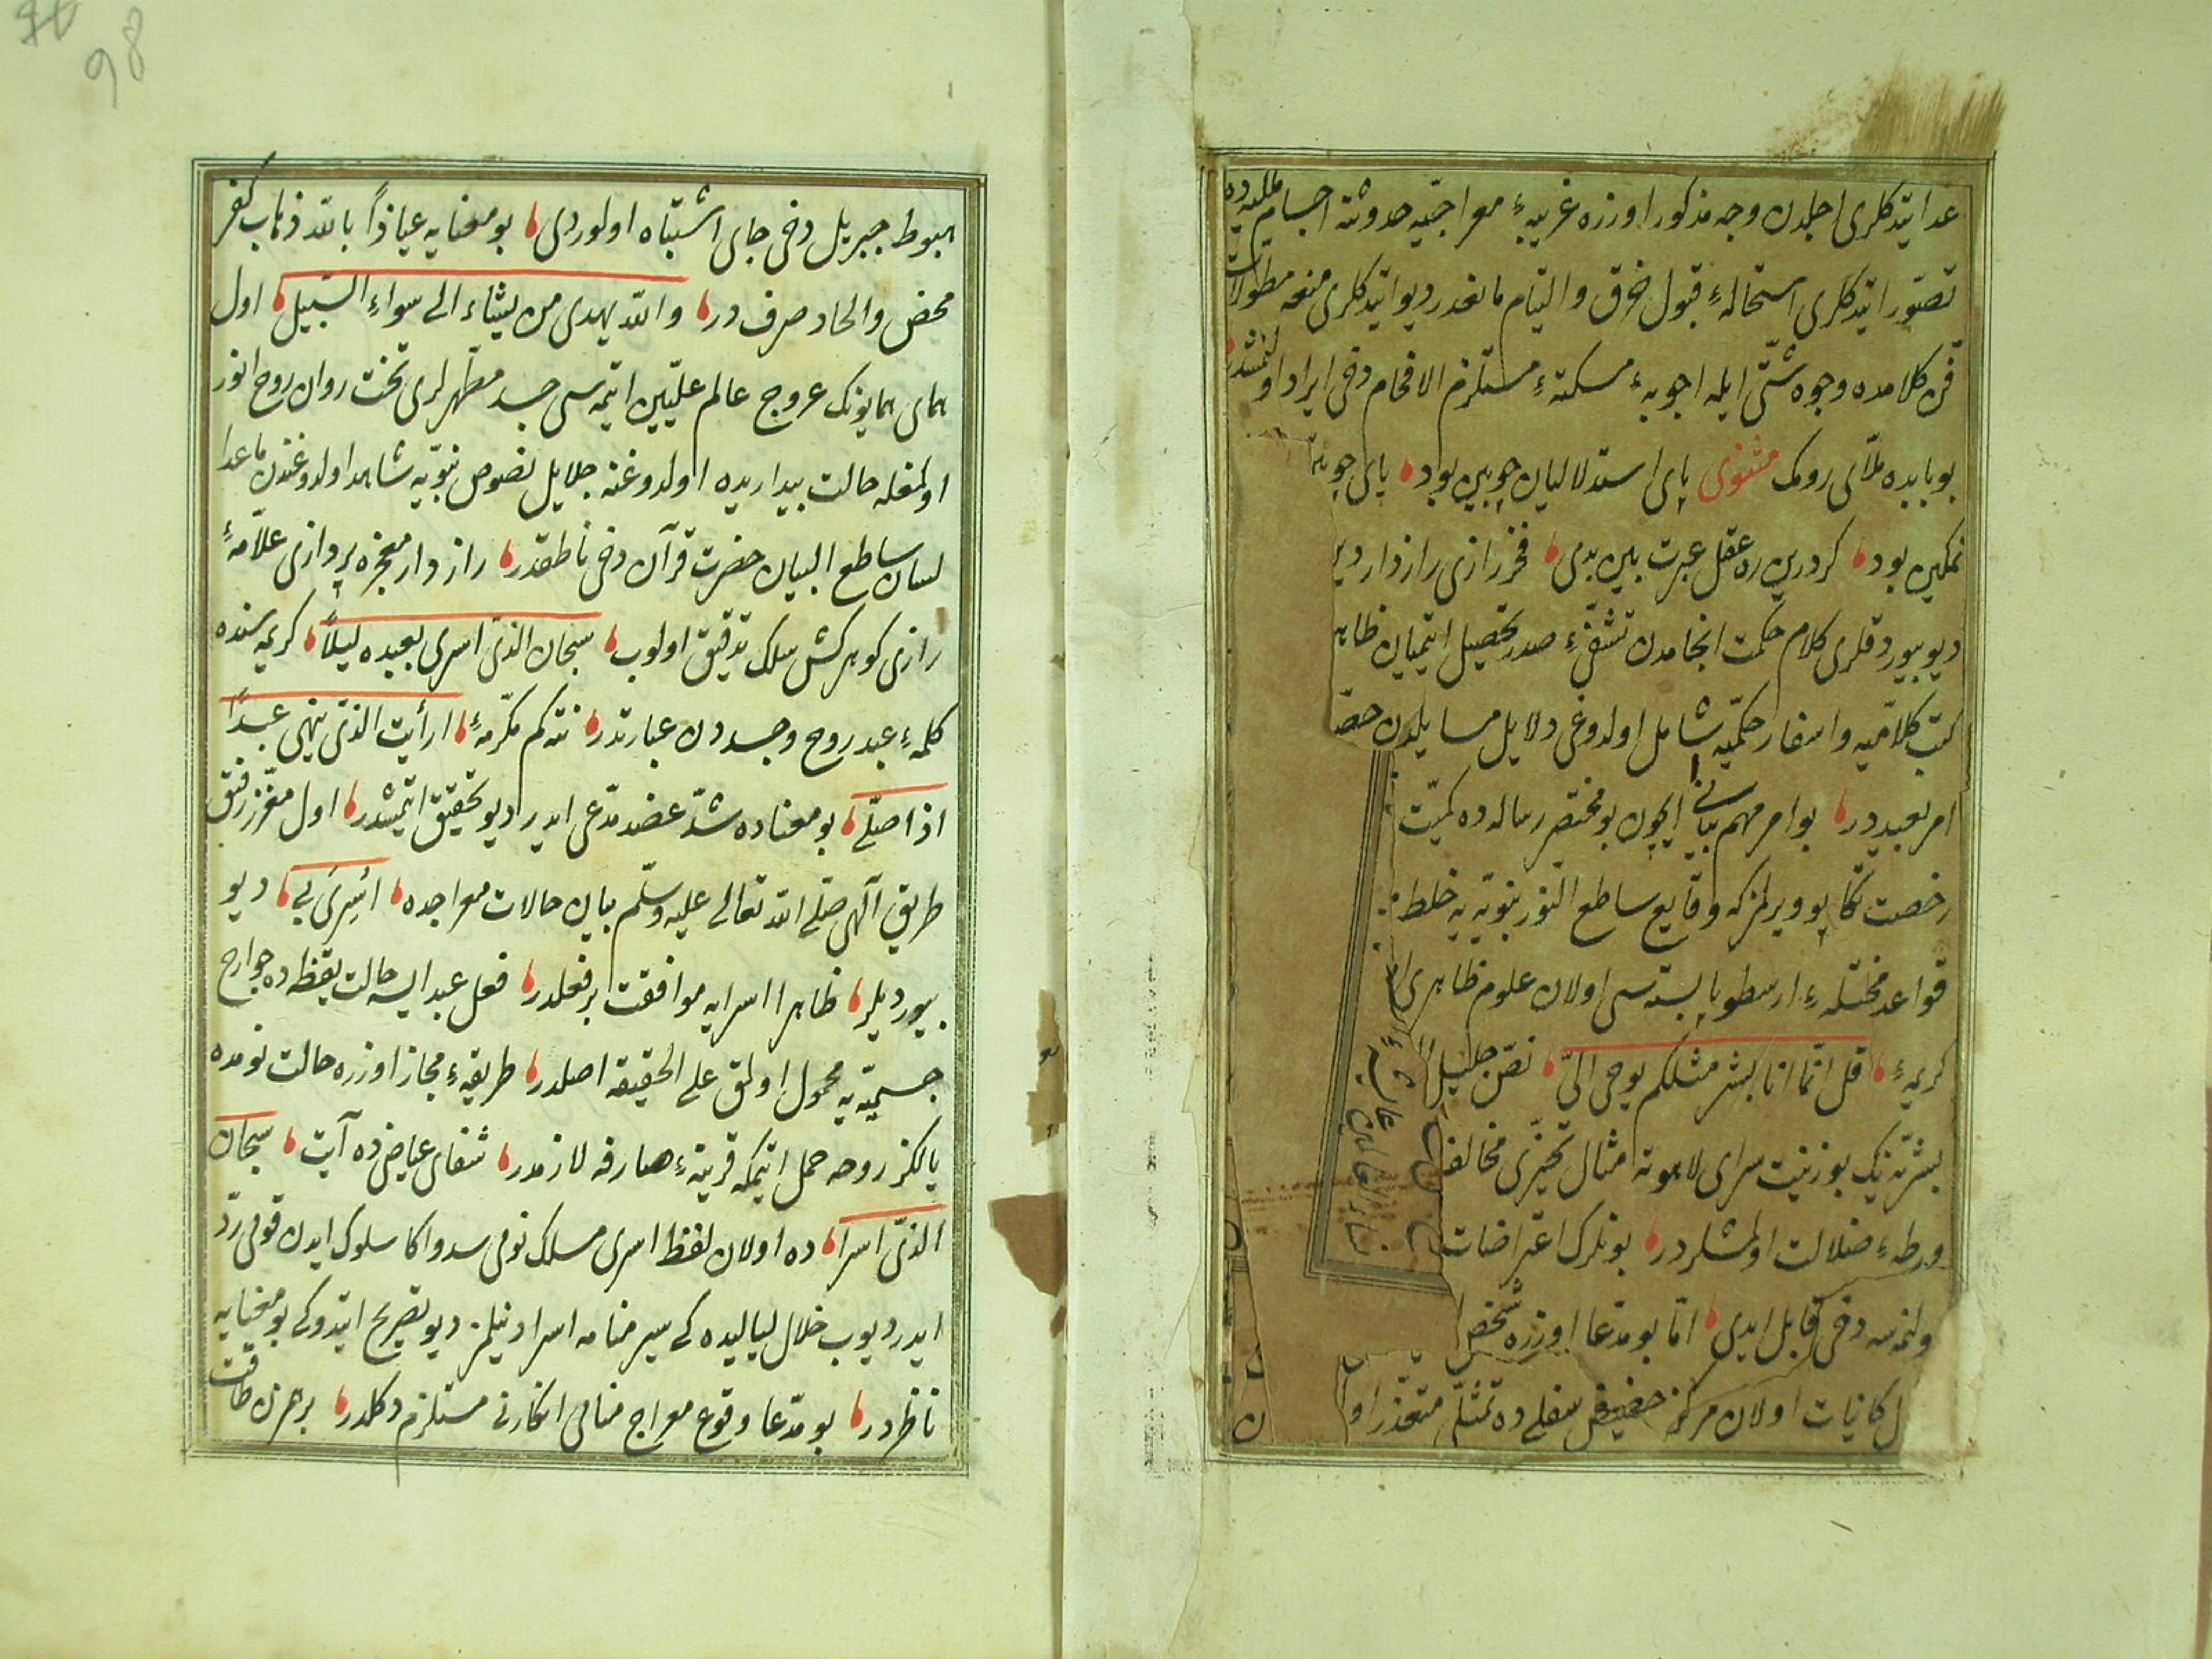 عد ایتدکلری اجلدن وجه مذکور اوزره غریبهٔ معراجیّه حدوثنه اجسام فلکیه ده
تصوّر ایتدکلری استحالهٔ قبول خرق والتیام مانعدر دیو ایتدکلری منعه مطولات
فنّ کلامده وجوه شتّی ایله اجوبهٔ مسکتهٔ مستلزم الافحام دخی ایراد اولنمشدر
بو بابده ملّای رومک مثنوی پای استدلالیان چوبین بود پای چوبین
تمکین بود کر درین ره عقل عبرت بین بدی فخر رازی رازدار دین
دیو بیوردقلری کلام حکمت انجامدن تشفّیٔ صدر تحصیل ایتمیان ظاهر
کتب کلامّیه واسفار حکمّیه شامل اولدوغی دلایل مسایلدن حصّه
امر بعیددر بو امر مهم بیانی ایچون بو مختصر رساله ده کمیّت
رخصت تکاپو ویرلمز که وقایع ساطع النّور نبوّیه یه خلط
قواعد مختلّهٔ ارسطو بایسته سی اولان علوم ظاهری
کریمهٔ قل انّما انا بشر مثلکم یوحی الیّ نصّ جلیل
بشرّیه نیک بوزینت سرای لاهوته امثال تحیّزی مخالف
ورطهٔ ضلالت اولمشلردر بونلرک اعتراضات
ولنمه سه دخی قابل ایدی امّا بو مدّعا اوزره شخص
ل کانیات اولان مرکز حضیض سفلی ده تمثّل متعذّر او
هبوط جبریل دخی جای اشتباه اولوردی بو معنایه عیاذاً بالله ذهاب کفر
محض والحاد صرف در والله یهدی من یشاء الی سواء السّبیل اول
همای همایونک عروج عالم علیّین ایتمه سی جسد مطهرلری تخت روان روح انور
اولمغله حالت بیداریده اولدوغنه جلایل نصوص نبوّیه شاهد اولدوغندن ماعدا
لسان ساطع البیان حضرت قرآن دخی ناطقدر رازدار معجزه پردازی علّامهٔ
رازی کوهرکش سلک تدقیق اولوب سبحان الّذی اسری بعبده لیلاً کریمه سنده
کلمهٔ عبد روح وجسددن عبارتدر نته کم مکرّمهٔ ارأیت الّذی ینهی عبداً
اذا صلّی بو معناده شدّ عضد مدّعی ایدر دیو تحقیق ایتمشدر اول معزّز رفیق
طریق آلهی صلّی الله تعالی علیه وسلّم بیان حالات معراجده اُسِریَ بی دیو
بیوردیلر ظاهرا اسرایه موافقت بر فعلدر فعل عبد ایسه حالت یقظه ده جوارح
جسمیّه یه محمول اولمق علی الحقیقه اصلدر طریقهٔ مجاز اوزره حالت نومده
یالکز روحه حمل ایتمکه قرینهٔ صارفه لازمدر شفای عیاض ده آیت سبحان
الّذی اسرا ده اولان لفظ اسری مسلک نومی سد واکا سلوک ایدن قومی ردّ
ایدر دیوب خلال لیالیده کی سیر منامه اسرا دینلمز دیو تصریح ایتدوکی بو معنایه
ناظردر بو مدّعا وقوع معراج منامی انکارنی مستلزم دکلدر
98